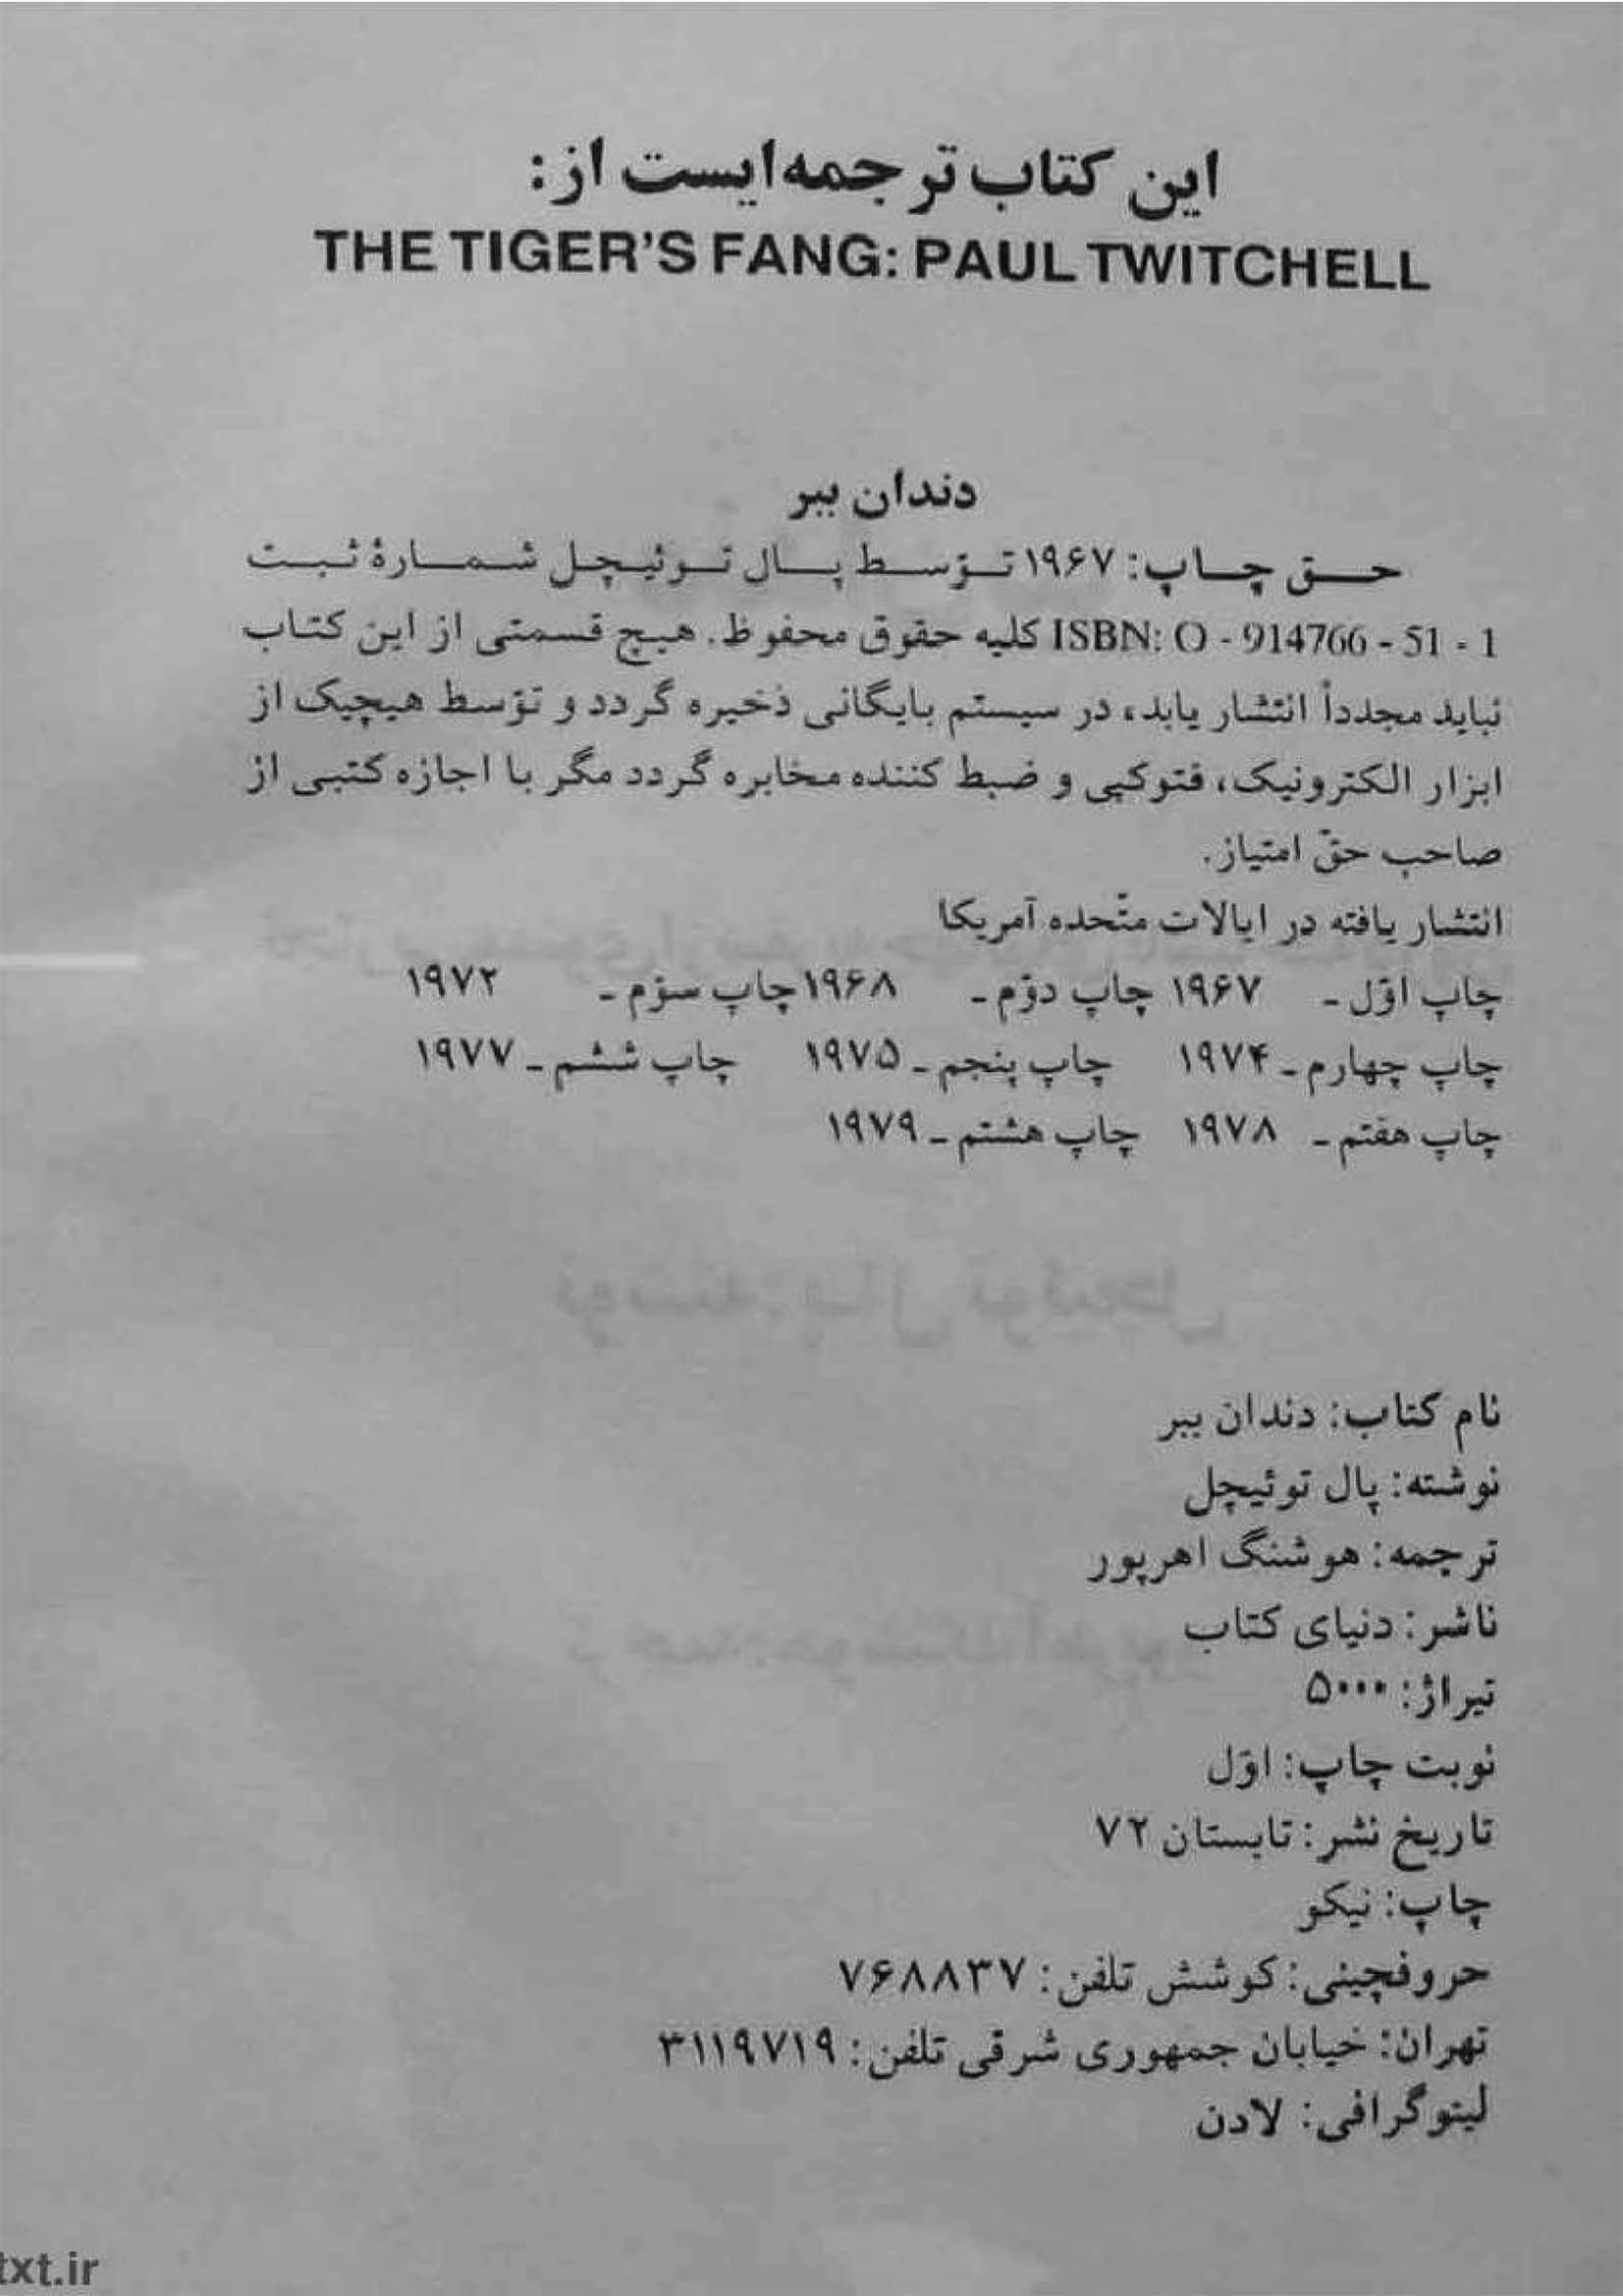 این کتاب ترجمه‌ایست از:
THE TIGER'S FANG: PAUL TWITCHELL
دندان ببر
حق چاپ: ۱۹۶۷ تؤسط پال توئیچل شمارهٔ ثبت
ISBN: O - 914766 - 51 - 1 کلیه حقوق محفوظ. هیچ قسمتی از این کتاب
نباید مجدداً انتشار یابد، در سیستم بایگانی ذخیره گردد و تؤسط هیچیک از
ابزار الکترونیک، فتوکپی و ضبط کننده مخابره گردد مگر با اجازه کتبی از
صاحب حقّ امتیاز.
انتشار یافته در ایالات متّحده آمریکا
چاپ اوّل ـ ۱۹۶۷ چاپ دوّم ـ ۱۹۶۸ چاپ سوّم ـ ۱۹۷۲
چاپ چهارم ـ ۱۹۷۴ چاپ پنجم ـ ۱۹۷۵ چاپ ششم ـ ۱۹۷۷
چاپ هفتم ـ ۱۹۷۸ چاپ هشتم ـ ۱۹۷۹
نام کتاب: دندان ببر
نوشته: پال توئیچل
ترجمه: هوشنگ اهرپور
ناشر: دنیای کتاب
تیراژ: ۵۰۰۰
نوبت چاپ: اوّل
تاریخ نشر: تابستان ۷۲
چاپ: نیکو
حروفچینی: کوشش تلفن: ۷۶۸۸۳۷
تهران: خیابان جمهوری شرقی تلفن: ۳۱۱۹۷۱۹
لیتوگرافی: لادن
txt.ir